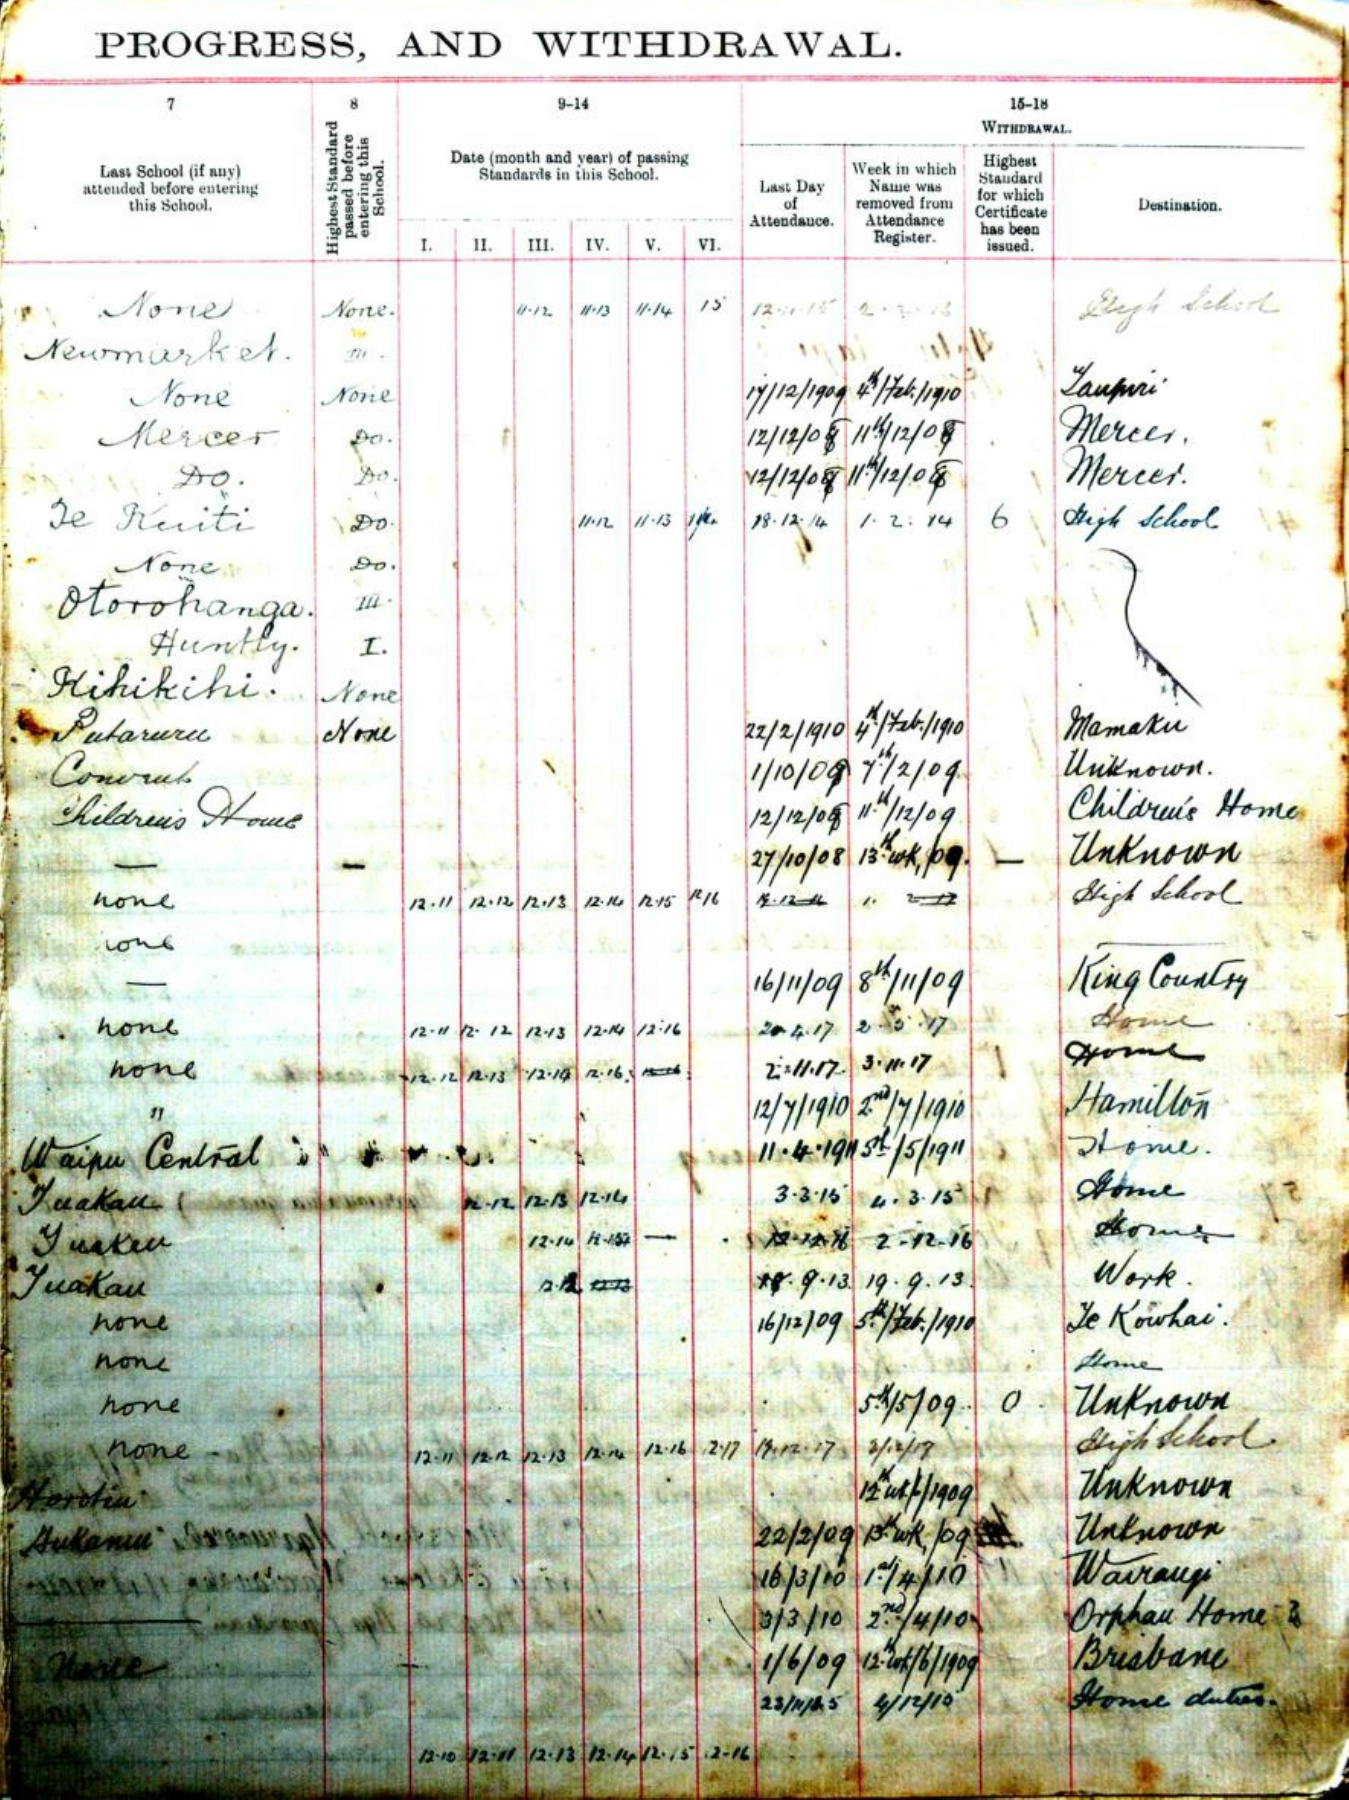 PROGRESS, AND WITHDRAWAL.
7 8 9-14 15-18
WITHDRAWAL.
Last School (if any) attended before entering this School.
Highest Standard passed before entering this School.
Date (month and year) of passing Standards in this School.
Last Day of Attendance.
Week in which Name was removed from Attendance Register.
Highest Standard for which Certificate has been issued.
Destination.
I. II. III. IV. V. VI.
None None. 11·12 11·13 11·14 15 High School
Newmarket. III.
None None 17/12/1909 4th/Feb./1910 Taupiri
Mercer Do. 12/12/08 11th/12/08 Mercer.
Do. Do. 12/12/08 11th/12/08 Mercer.
Te Kuiti Do. 11·12 11·13 18·12·14 1·2·14 6 High School
None Do.
Otorohanga. III.
Huntly. I.
Kihikihi. None
Putaruru None 22/2/1910 4th/Feb./1910 Mamaku
Convent 1/10/09 7th/2/09 Unknown.
Children's Home 12/12/08 11th/12/09 Children's Home
— — 27/10/08 13th wk, /09. — Unknown
none 12·11 12·12 12·13 12·14 12·15 12·16 High School
none
— 16/11/09 8th/11/09 King Country
none 12·11 12·12 12·13 12·14 12·16 20·4·17 2·5·17 Home
none 12·12 12·13 12·14 12·16 2·11·17 3·11·17 Home
" 12/7/1910 2nd/7/1910 Hamilton
Waipu Central " 11·4·1911 5th/5/1911 Home.
Tuakau 12·12 12·13 12·14 3·3·15 4·3·15 Home
Tuakau 12·14 — 2-12-16 Home
Tuakau 12·12 18·9·13 19·9·13. Work.
none 16/12/09 5th/Feb./1910 Te Kowhai.
none Home
none 5th/5/09. 0 Unknown
none 12·11 12·12 12·13 12·14 12·16 12·17 12·17 High School
Horotiu 12th wk/1909 Unknown
22/2/09 13th wk, /09 Unknown
16/3/10 1st/4/10 Wairangi
3/3/10 2nd/4/10 Orphan Home ?
None 1/6/09 12th wk/6/1909 Brisbane
4/12/10 Home duties.
12·10 12·11 12·13 12·14 12·15 12-16